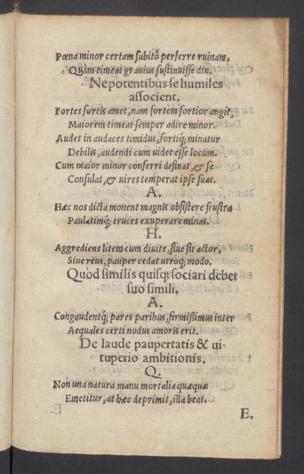 Pœna minor certam subitò perferre ruinam,
Quàm timeat grauius sustinuisse diu.
Ne potentibus se humiles
associent.
Fortes fortis amet, nam fortem fortior angit,
Maiorem timeat semper adire minor.
Audet in audaces timidus, fortiq; minatur
Debilis, audendi cum uidet esse locum.
Cum maior minor conferri desinat, & se
Consulat, & uires temperat ipse suas.
A.
Hæc nos dicta monent magnis obsistere frustra
Paulatimq; truces exuperare minas.
H.
Aggrediens litem cum diuite, siue sit actor,
Siue reus, pauper cedat utroq; modo.
Quòd similis quisq; sociari debet
suo simili.
A.
Congaudentq; pares paribus, firmissimus inter
Aequales certi nodus amoris erit.
De laude paupertatis & ui-
tuperio ambitionis.
Q.
Non una natura manu mortalia quæque
Emetitur, at hæc deprimit, illa beat.
E.